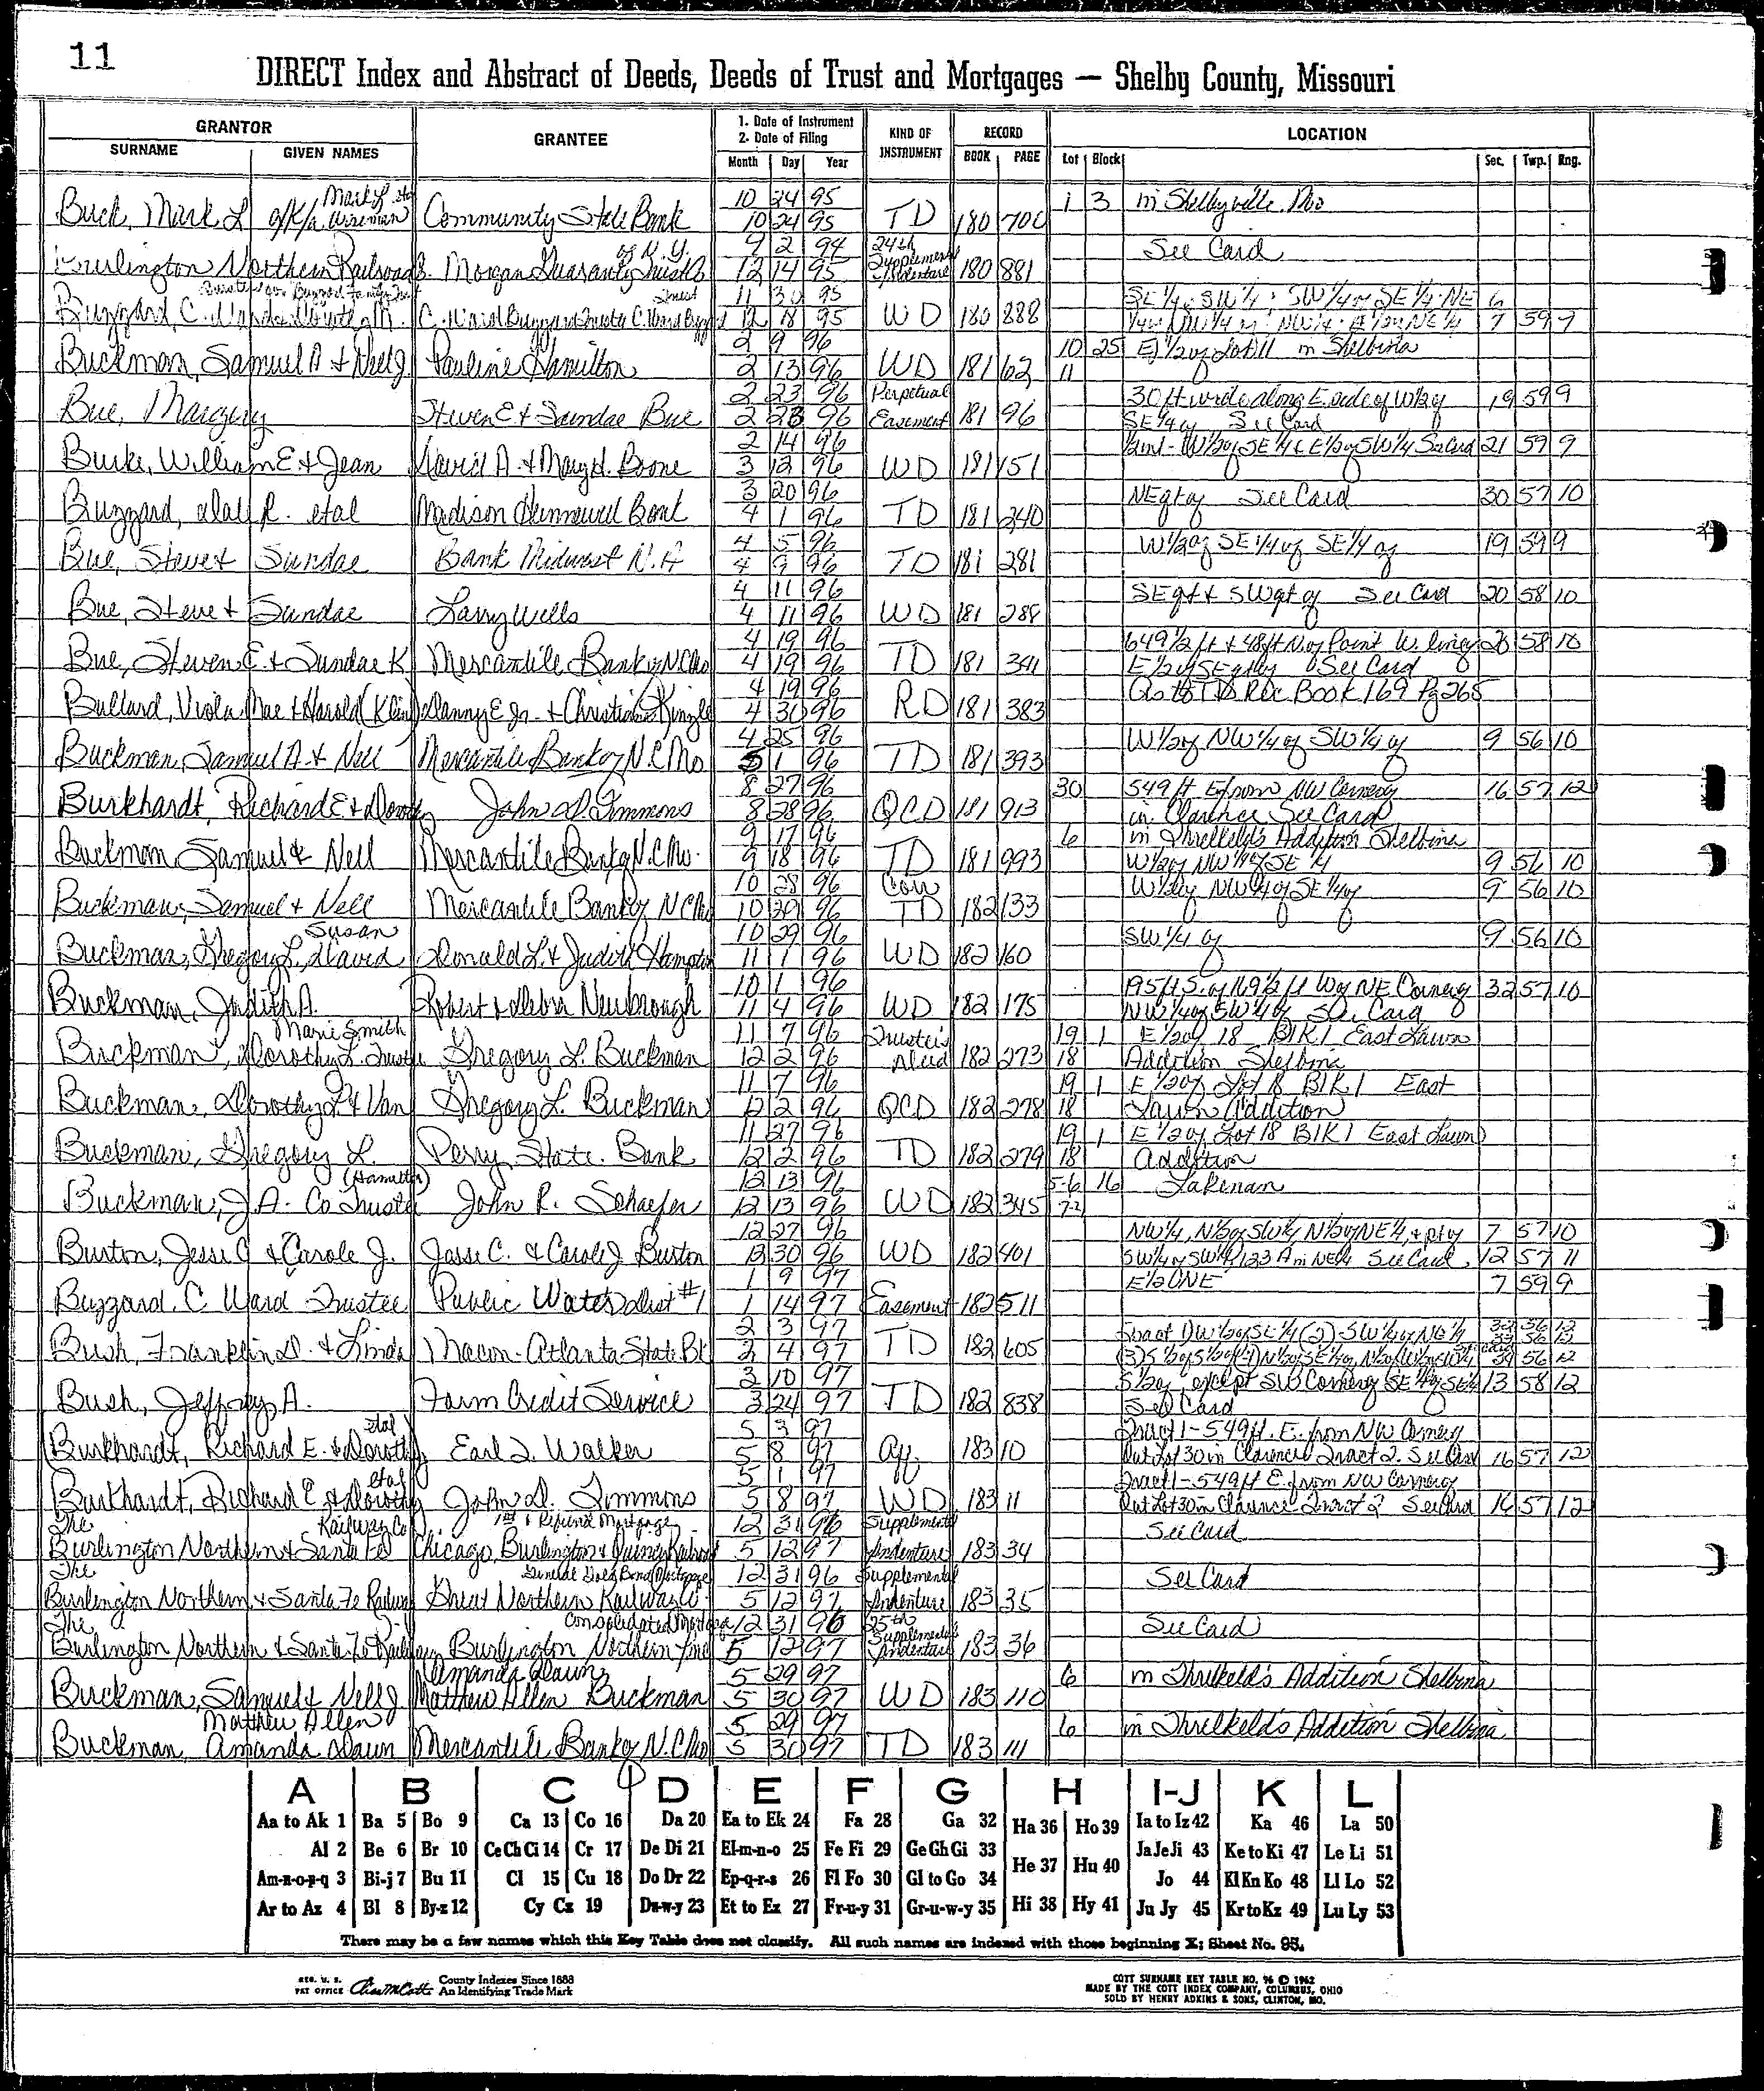 11
DIRECT Index and Abstract of Deeds, Deeds of Trust and Mortgages — Shelby County, Missouri
GRANTOR
SURNAME GIVEN NAMES
GRANTEE
1. Date of Instrument
2. Date of Filing
Month Day Year
KIND OF INSTRUMENT
RECORD
BOOK PAGE
LOCATION
Lot Block
Sec. Twp. Rng.
Mark L. etal 10 24 95 1 3 in Shelbyville, Mo
Buck, Mark L a/k/a Wiseman Community State Bank 10 24 95 TD 180 700
of N.Y. 4 2 94 24th Supplemental See Card
Burlington Northern Railroad Morgan Guaranty Trust Co 12 14 95 Indenture 180 881
11 30 95 SE 1/4 of SW 1/4; SW 1/4 of SE 1/4; NE 6
Buzzard, C. Ward C. Ward Buzzard Trustee C. Ward Buzzard 12 18 95 WD 180 888 7 59 9
2 9 96 10 25 E 1/2 of Lot 11 in Shelbina
Buckman, Samuel A & Nell J Pauline Hamilton 2 13 96 WD 181 62 11
2 23 96 Perpetual 30 ft wide along E. side of W 1/2 of 19 59 9
Bue, Margery Steven E & Sundae Bue 2 23 96 Easement 181 96 SE 1/4 of See Card
2 14 96 W 1/2 of SE 1/4 & E 1/2 of SW 1/4 See Card 21 59 9
Burke, William E & Jean David A. & Mary H. Boone 3 12 96 WD 181 151
3 20 96 NEqt of See Card 30 57 10
Buzzard, R. etal Madison Bank 4 1 96 TD 181 240
4 5 96 W 1/2 of SE 1/4 of SE 1/4 of 19 59 9
Bue, Steve & Sundae Bank Midwest N.A 4 9 96 TD 181 281
4 11 96 SEqt & SWqt of See Card 20 58 10
Bue, Steve & Sundae Larry Wells 4 11 96 WD 181 288
4 19 96 649 1/2 ft & 48 ft N. of Point W. line of 58 10
Bue, Steven E. & Sundae K Mercantile Bank of NC Mo 4 19 96 TD 181 341 E 1/2 of SEqt of See Card
4 19 96 As to TD Rec Book 169 Pg 265
Bullard, Viola Mae & Harold Danny E Jr. & Christine 4 30 96 RD 181 383
4 25 96 W 1/2 of NW 1/4 of SW 1/4 of 9 56 10
Buckman, Samuel A. & Nell Mercantile Bank of N.C Mo 5 1 96 TD 181 393
8 27 96 30 549 ft E from NW Corner of 16 57 12
Burkhardt, Richard E & Dorothy John D. Timmons 8 28 96 QCD 181 913 in Clarence See Card
9 17 96 6 in Threlkeld's Addition Shelbina
Buckman Samuel & Nell Mercantile Bank of N.C Mo. 9 18 96 TD 181 993 W 1/2 of NW 1/4 of SE 1/4 9 56 10
10 28 96 Corr W 1/2 of NW 1/4 of SE 1/4 of 9 56 10
Buckman, Samuel & Nell Mercantile Bank of N C Mo 10 29 96 TD 182 133
Susan 10 29 96 SW 1/4 of 9 56 10
Buckman, Gregory L., David Donald L. & Judith Hampton 11 1 96 WD 182 160
10 1 96 195 ft S. of 169 1/2 ft W of NE Corner of 32 57 10
Buckman, Judith A. Robert & Debra Newbrough 11 4 96 WD 182 175 NW 1/4 of SW 1/4 of See Card
Marie Smith 11 7 96 Trustee's 19 1 E 1/2 of 18 Blk 1 East Lawn
Buckman, Dorothy L. Trustee Gregory L. Buckman 12 2 96 Deed 182 273 18 Addition Shelbina
11 7 96 19 1 E 1/2 of Lot 18 Blk 1 East
Buckman, Dorothy L & Van Gregory L. Buckman 12 2 96 QCD 182 278 18 Lawn Addition
11 27 96 19 1 E 1/2 of Lot 18 Blk 1 East Lawn
Buckman, Gregory L. Perry State Bank 12 2 96 TD 182 279 18 Addition
(Hamilton) 12 13 96 5-6 16 Lakenan
Buckman, J A. Co Trustee John R. Schaefer 12 13 96 WD 182 345
12 27 96 NW 1/4, N 1/2 of SW 1/4, N 1/2 of NE 1/4, & pt of 7 57 10
Burton, Jesse C & Carole J. Jesse C. & Carole J Burton 12 30 96 WD 182 401 SW 1/4 of SW 1/4 123 A in NE 1/4 See Card 12 57 11
1 9 97 E 1/2 ONE 7 59 9
Buzzard, C. Ward Trustee Public Water Dist #1 1 14 97 Easement 182 511
2 3 97 Tract 1) W 1/2 of SE 1/4 (2) SW 1/4 of NE 1/4
Bush, Franklin D. & Linda Macon-Atlanta State Bk 2 4 97 TD 182 605 56 12
3 10 97 S 1/2 of, except SW Corner of SE 1/4 of SE 1/4 13 58 12
Bush, Jeffrey A. Farm Credit Service 3 24 97 TD 182 838 See Card
etal 5 3 97 Tract 1 - 549 ft. E. from NW Corner of
Burkhardt, Richard E. & Dorothy Earl L. Walker 5 8 97 Aff. 183 10 Out Lot 30 in Clarence Tract 2. See Card 16 57 12
etal 5 1 97 Tract 1 - 549 ft E. from NW Corner of
Burkhardt, Richard E & Dorothy John D. Timmons 5 8 97 WD 183 11 Out Lot 30 in Clarence Tract 2 See Card 16 57 12
The Railway Co 1st & Refund Mortgage 12 31 96 Supplemental See Card
Burlington Northern & Santa Fe Chicago, Burlington & Quincy Railroad 5 12 97 Indenture 183 34
The General Gold Bond Mortgage 12 31 96 Supplemental See Card
Burlington Northern & Santa Fe Railway Great Northern Railway Co. 5 12 97 Indenture 183 35
The Consolidated Mortgage 12 31 96 25th Supplemental See Card
Burlington Northern & Santa Fe Railway Burlington Northern Inc 5 12 97 Indenture 183 36
Amanda Dawn 5 29 97 6 in Threlkeld's Addition Shelbina
Buckman, Samuel & Nell J Matthew Allen Buckman 5 30 97 WD 183 110
Matthew Allen 5 29 97 6 in Threlkeld's Addition Shelbina
Buckman, Amanda Dawn Mercantile Bank of N.C Mo 5 30 97 TD 183 111
A B C D E F G H I-J K L
Aa to Ak 1 Ba 5 Bo 9 Ca 13 Co 16 Da 20 Ea to Ek 24 Fa 28 Ga 32 Ha 36 Ho 39 Ia to Iz 42 Ka 46 La 50
Al 2 Be 6 Br 10 Ce Ch Ci 14 Cr 17 De Di 21 El-m-n-o 25 Fe Fi 29 Ge Gh Gi 33 He 37 Hu 40 Ja Je Ji 43 Ke to Ki 47 Le Li 51
Am-n-o-p-q 3 Bi-j 7 Bu 11 Cl 15 Cu 18 Do Dr 22 Ep-q-r-s 26 Fl Fo 30 Gl to Go 34 Jo 44 Kl Kn Ko 48 Ll Lo 52
Ar to Az 4 Bl 8 By-z 12 Cy Cz 19 Du-w-y 23 Et to Ez 27 Fr-u-y 31 Gr-u-w-y 35 Hi 38 Hy 41 Ju Jy 45 Kr to Kz 49 Lu Ly 53
There may be a few names which this Key Table does not classify. All such names are indexed with those beginning X; Sheet No. 95.
REG. U. S. PAT OFFICE County Indexes Since 1888 An Identifying Trade Mark
COTT SURNAME KEY TABLE NO. 96 © 1962
MADE BY THE COTT INDEX COMPANY, COLUMBUS, OHIO
SOLD BY HENRY ADKINS & SONS, CLINTON, MO.